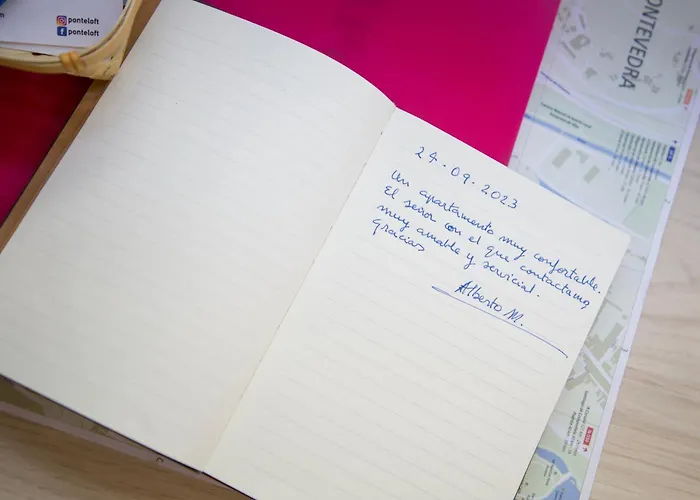 ponteloft
ponteloft
PONTEVEDRA
24.09.2023
Un apartamento muy confortable.
El señor con el que contactamos,
muy amable y servicial.
Gracias
Alberto M.